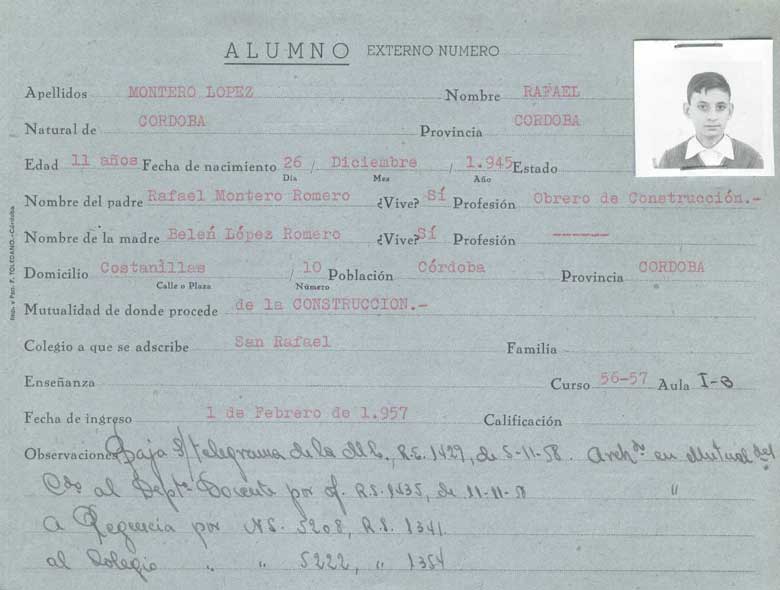 ALUMNO EXTERNO NUMERO
Apellidos MONTERO LOPEZ Nombre RAFAEL
Natural de CORDOBA Provincia CORDOBA
Edad 11 años Fecha de nacimiento 26 / Diciembre / 1.945 Estado
Día Mes Año
Nombre del padre Rafael Montero Romero ¿Vive? Sí Profesión Obrero de Construcción.-
Nombre de la madre Belén López Romero ¿Vive? Sí Profesión ------
Domicilio Costanillas / 10 Población Córdoba Provincia CORDOBA
Calle o Plaza Número
Mutualidad de donde procede de la CONSTRUCCION.-
Colegio a que se adscribe San Rafael Familia
Enseñanza Curso 56-57 Aula I-B
Fecha de ingreso 1 de Febrero de 1.957 Calificación
Observaciones Baja s/ telegrama de la M.L., R.E. 1429, de 5-11-58. Archdo en Mutual del
Cdo al Deptº Docente por of. R.S. 1435, de 11-11-58 "
a Regencia por N.S. 5208, R.S. 1341.
al Colegio " " 5222, " 1354
Imp. y Pap. F. TOLEDANO.-Córdoba